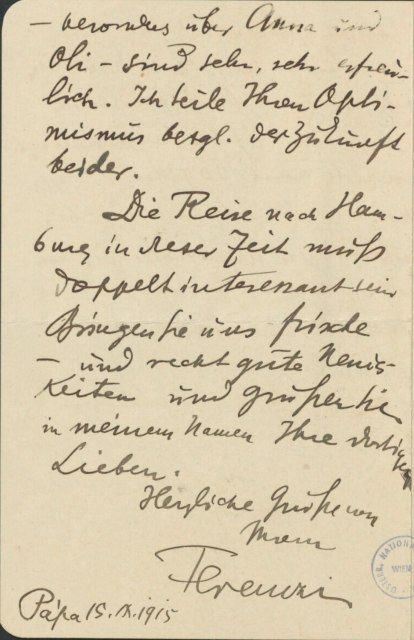 – besonders über Anna und
Oli – sind sehr, sehr erfreu-
lich. Ich teile Ihren Opti-
mismus bezgl. der Zukunft
beider.
Die Reise nach Ham-
burg in dieser Zeit muß
doppelt interessant sein
Bringen Sie uns frische
– und recht gute Neuig-
keiten und grüßen Sie
in meinem Namen Ihre dortigen
Lieben.
Herzliche Grüße von
Ihrem
Ferenczi
Pápa 15. IX. 1915
ÖSTERR. NATIONAL
WIEN